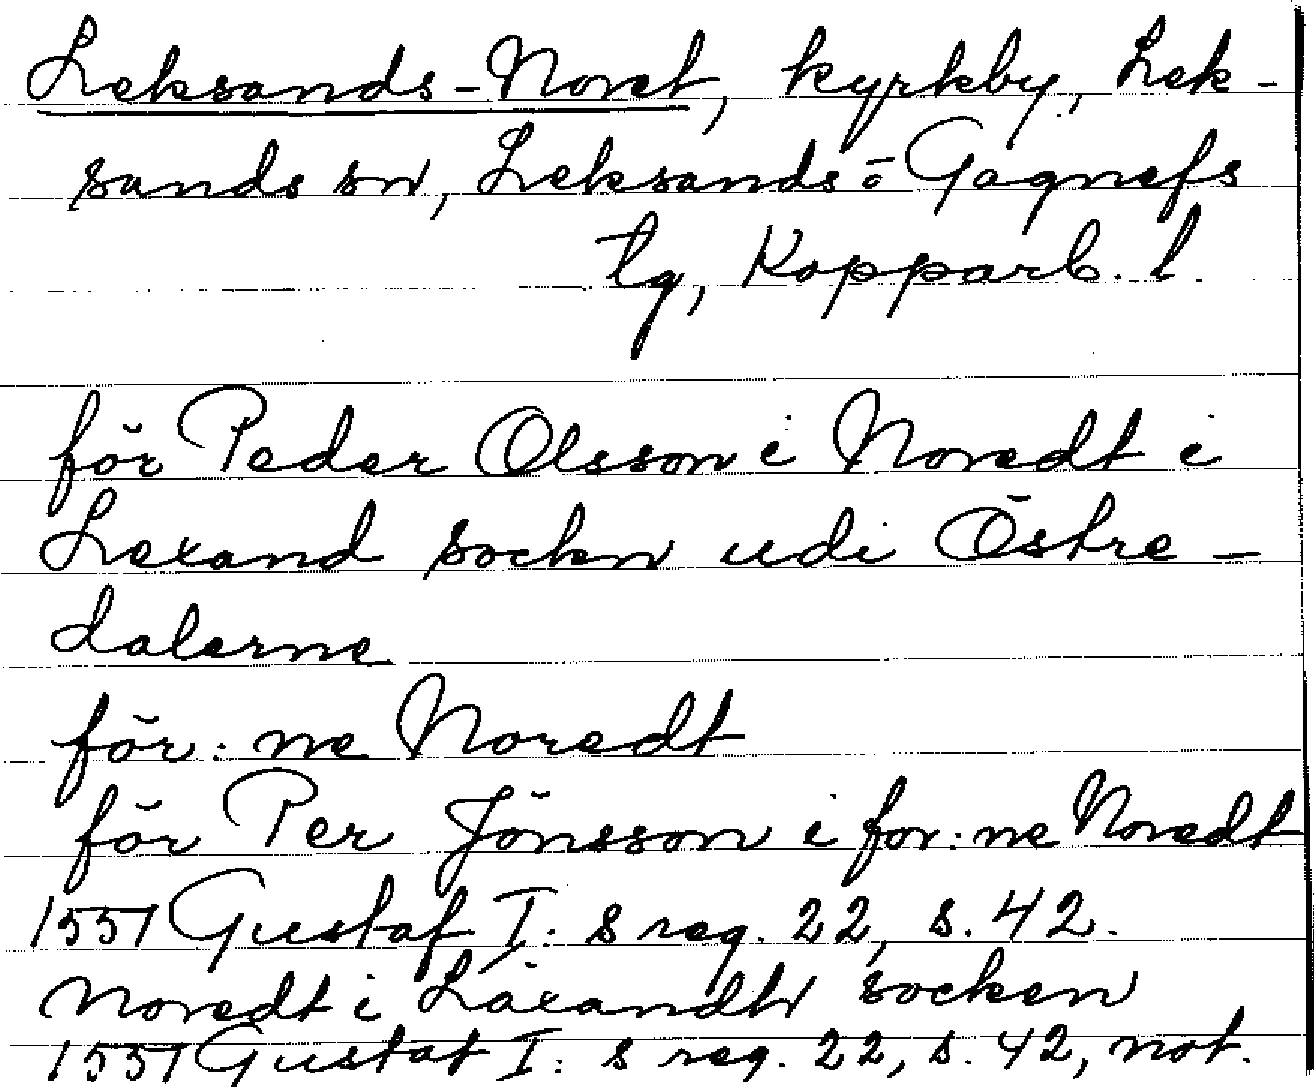 Leksands-Noret, kyrkby, Lek-
sands sn, Leksands- o Gagnefs
tg, Kopparb. l.
för Peder Olsson i Noredt i
Lexand sockn udi Östre-
dalerne
för:ne Noredt
för Per Jönsson i for:ne Noredt
1551 Gustaf I:s reg. 22, s. 42.
Noredt i Läxandh socken
1551 Gustaf I:s reg. 22, s. 42, not.